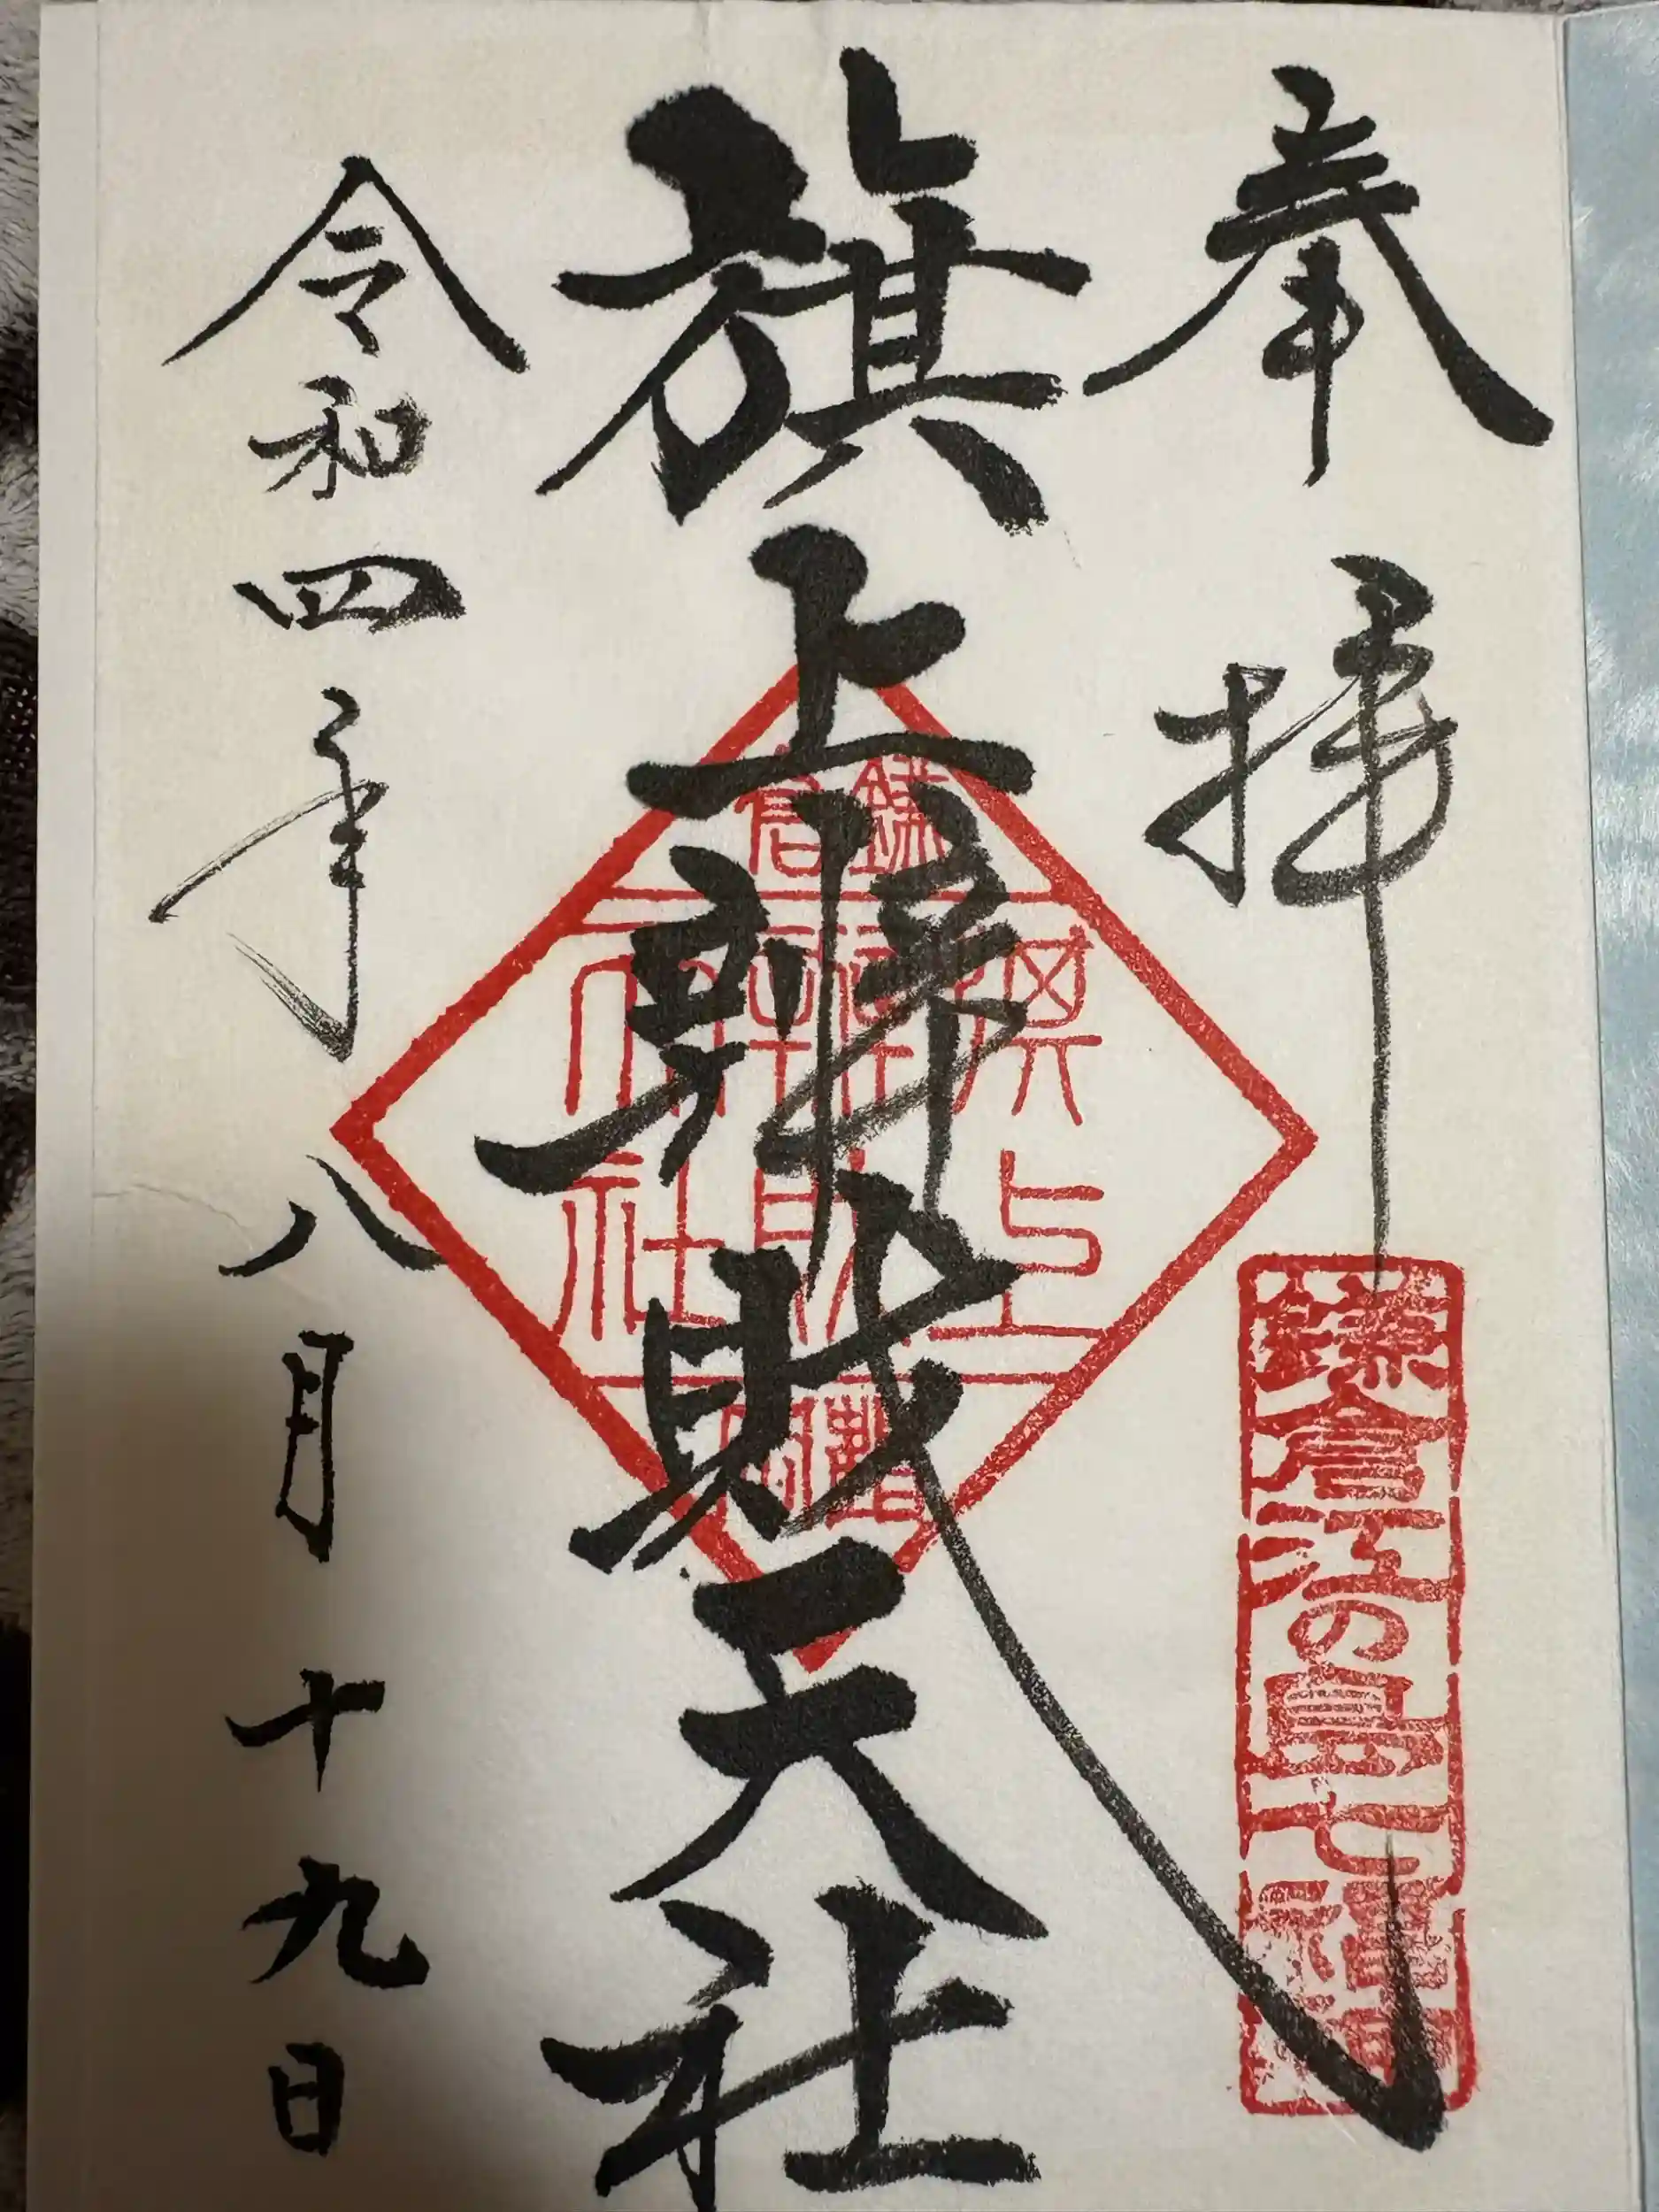 奉拝
鎌倉江の島七福神
旗上辨財天社
鎌倉
旗上
辨財
天社
令和四年八月十九日